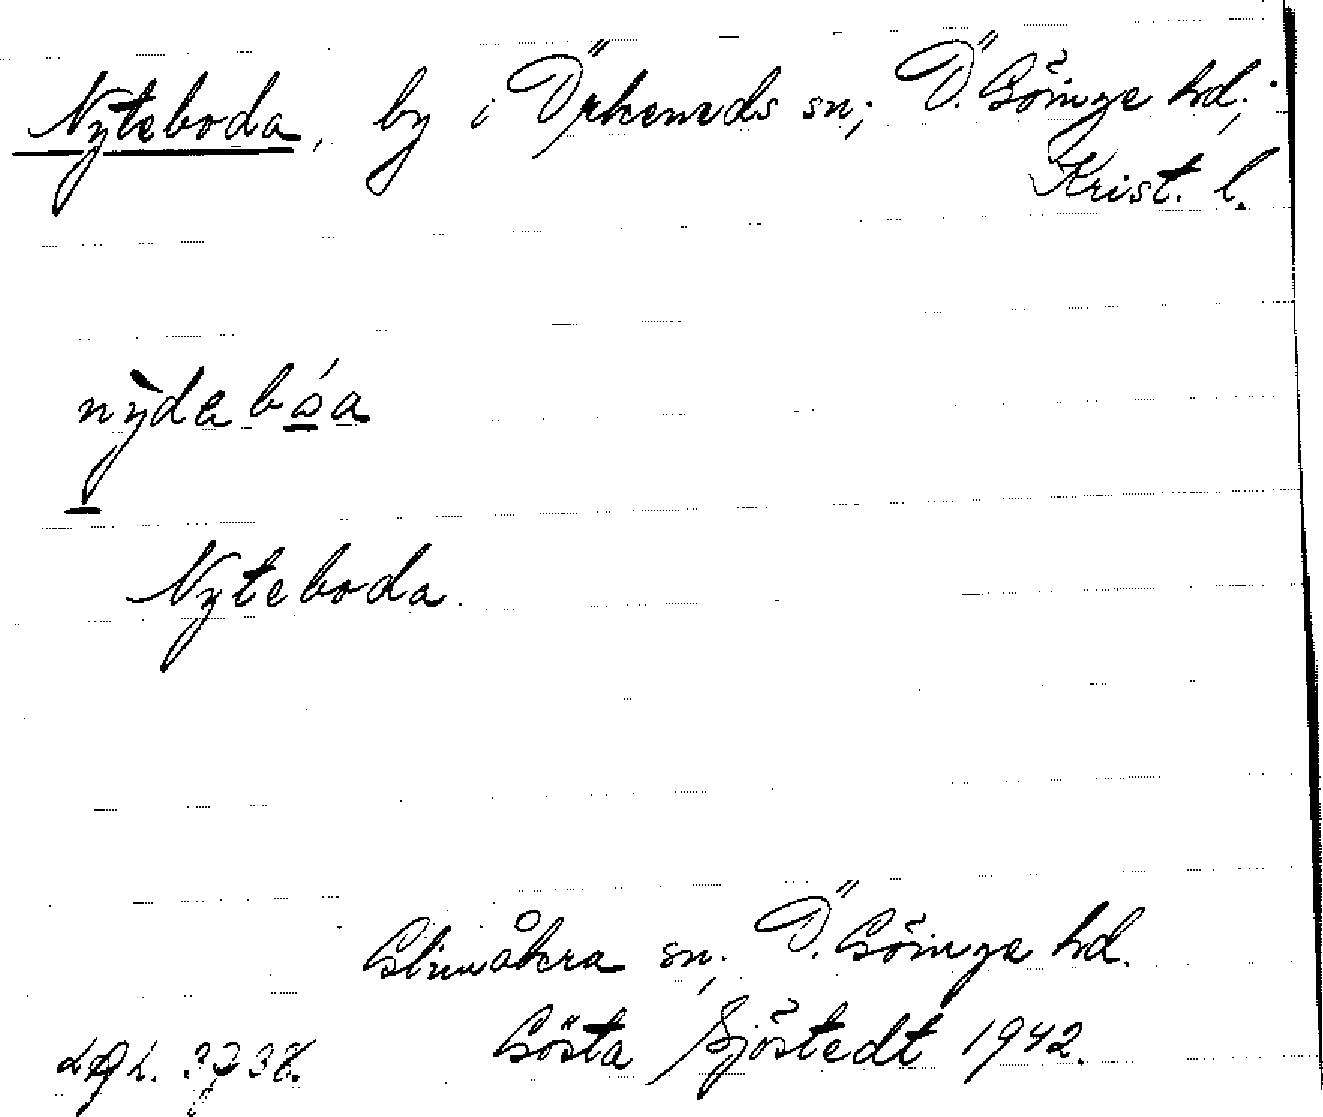 Nyteboda, by i Örkeneds sn; Ö. Göinge hd;
Krist. l.
nỳdabóa
Nyteboda.
Glimåkra sn, Ö. Göinge hd.
Gösta Sjöstedt 1942.